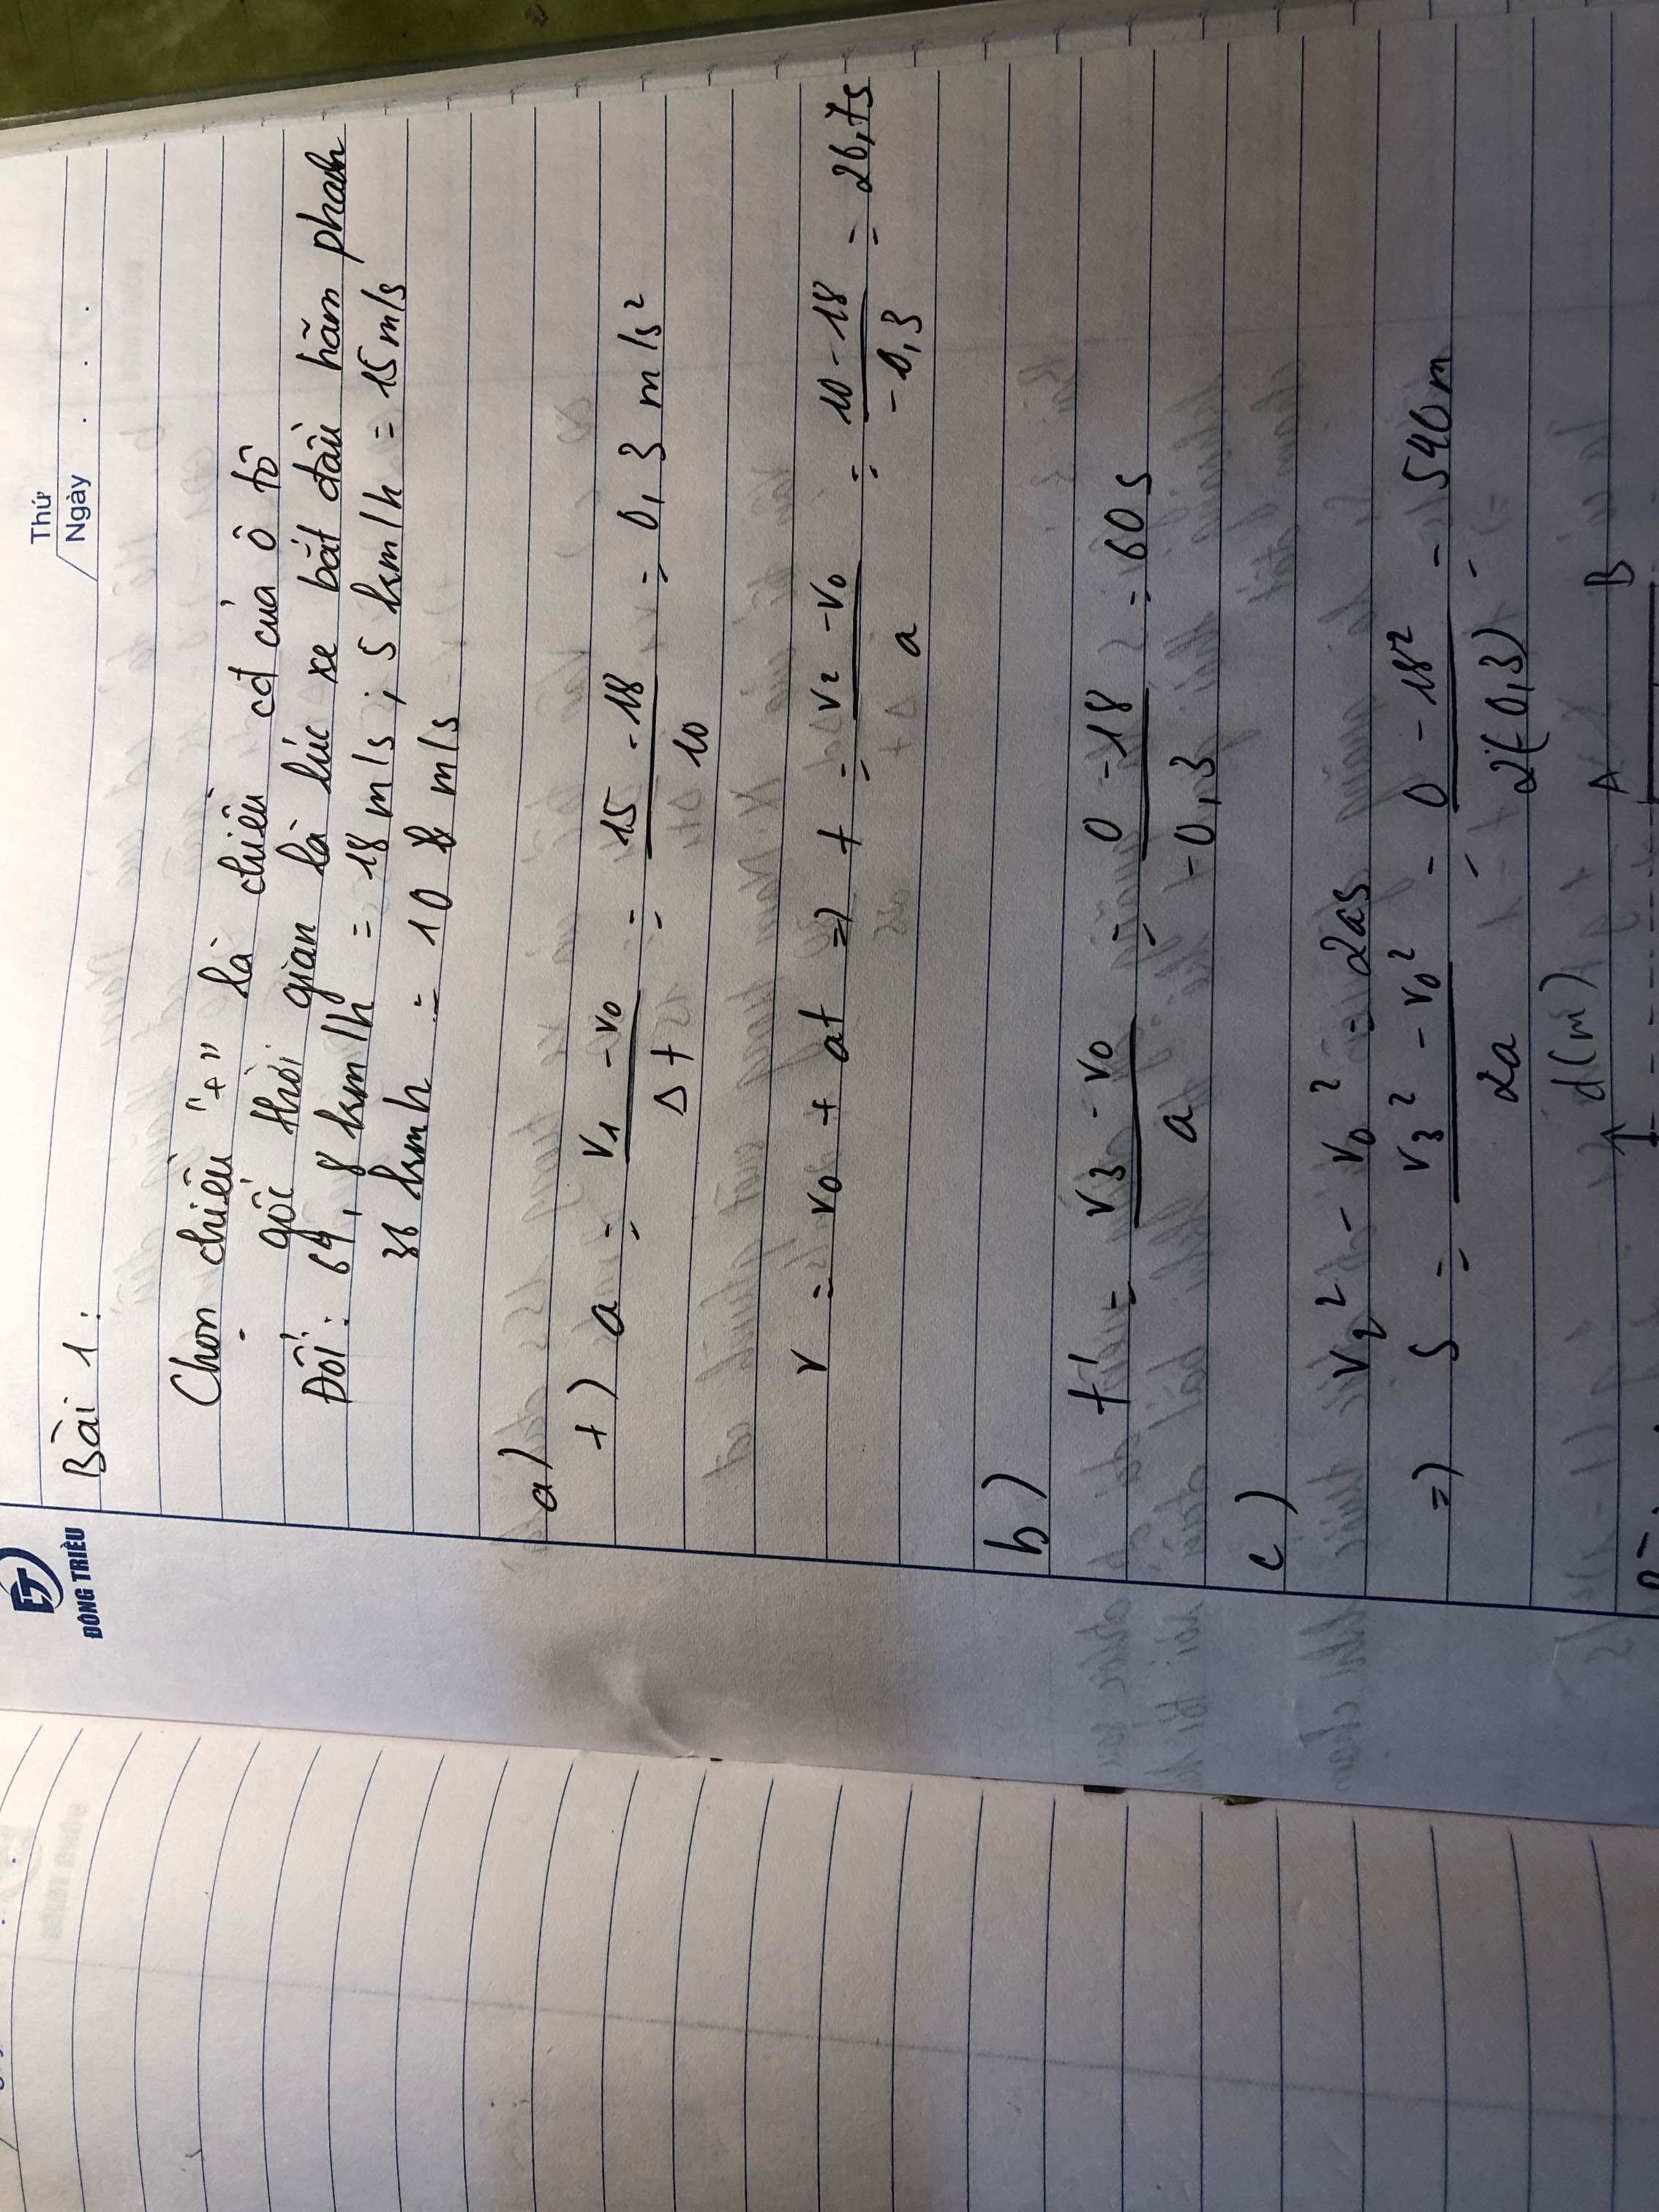 ĐÔNG TRIỀU
Thứ
Ngày . . .
Bài 1 :
Chọn chiều "+" là chiều cđ của ô tô
gốc thời gian là lúc xe bắt đầu hãm phanh
Đổi : 64,8 km/h = 18 m/s ; 5 km/h = 15 m/s
36 kmh = 10 m/s
a)
+) a = \frac{v_1 - v_0}{\Delta t} = \frac{15 - 18}{10} = 0,3 m/s²
v = v_0 + at => t = \frac{v_2 - v_0}{a} = \frac{10 - 18}{-0,3} = 26,7s
b)
t' = \frac{v_3 - v_0}{a} = \frac{0 - 18}{-0,3} = 60 s
c)
v_2² - v_0² = 2as
=) S = \frac{v_3² - v_0²}{2a} = \frac{0 - 18²}{2(-0,3)} = 540 m
d(m) A B